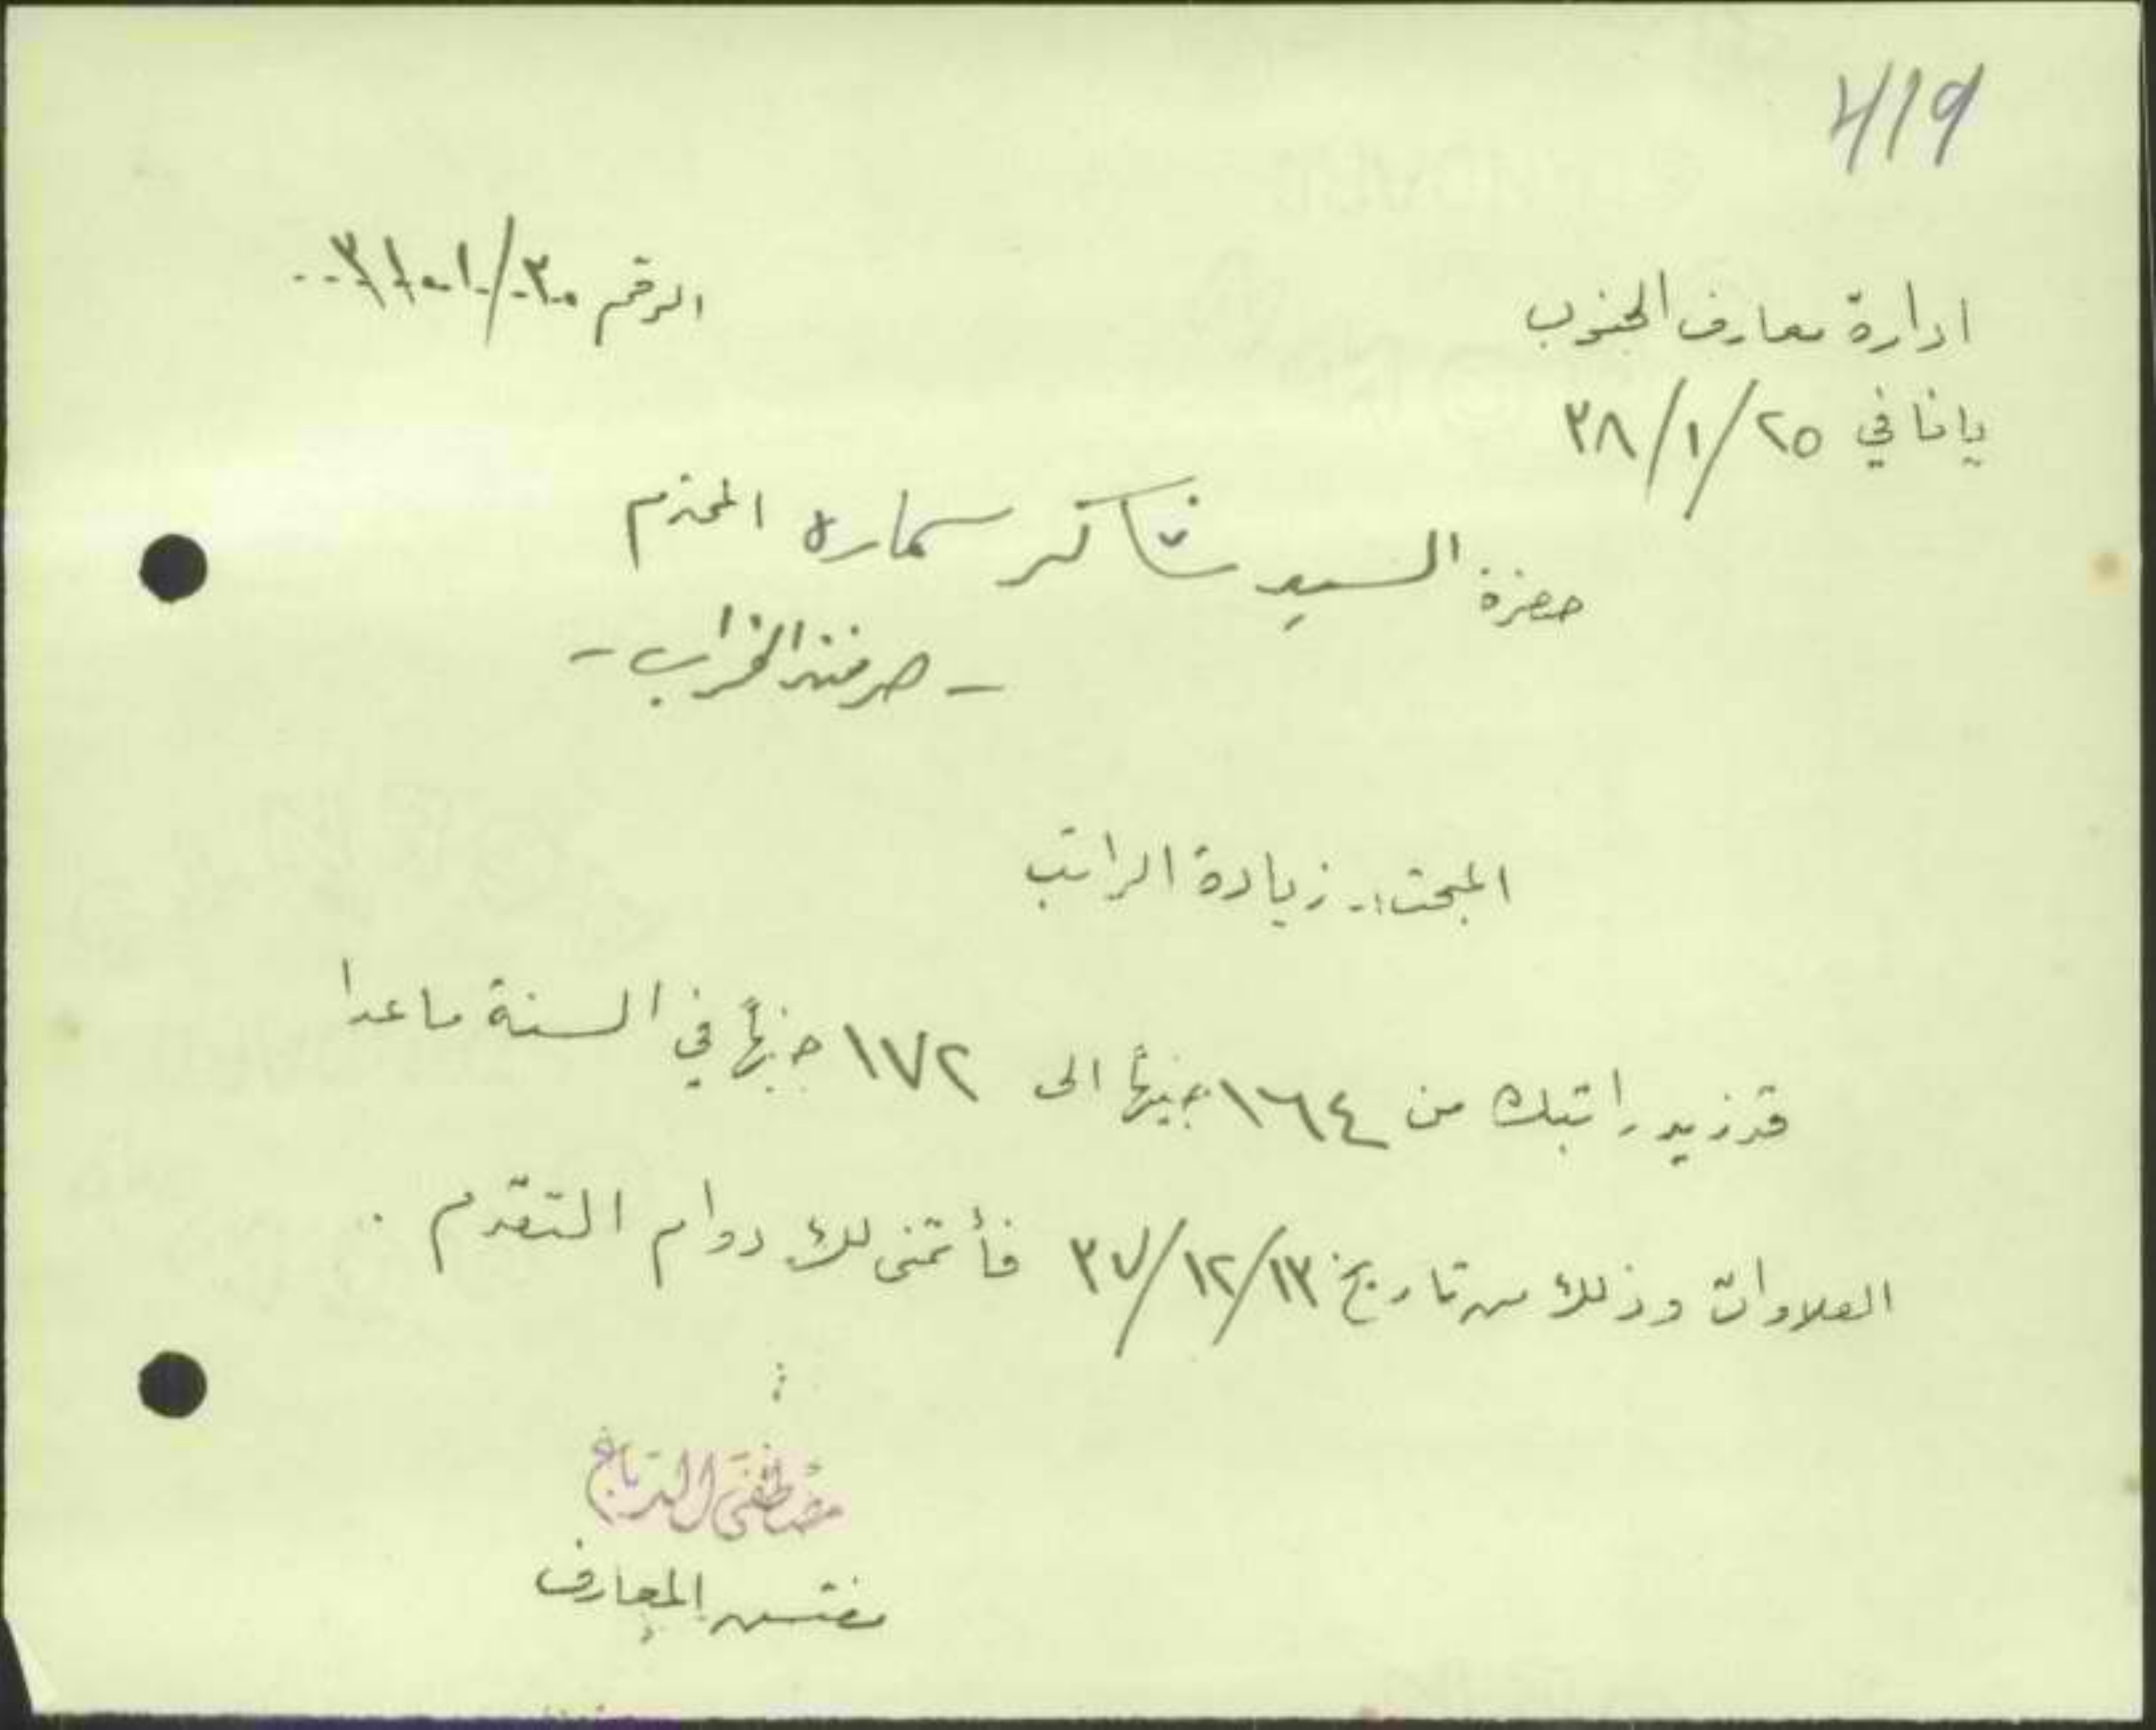 419
ادارة معارف الجنوب
الرقم
يافا في ٢٥/١/٣٨
حضرة السيد شاكر سماره المحترم
- صرفند الخراب -
المبحث:- زيادة الراتب
قد زيد راتبك من ١٦٤ جنيهاً الى ١٧٢ جنيهاً في السنة ما عدا
العلاوات وذلك من تاريخ ١٣/١٢/٣٧ فأتمنى لك دوام التقدّم .
مصطفى الدباغ
مفتش المعارف